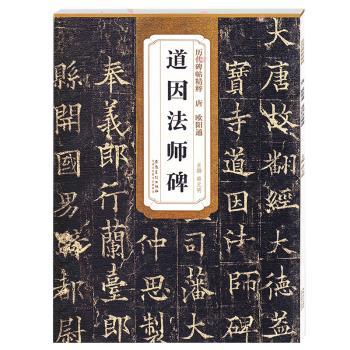 历代碑帖精粹 唐 欧阳通
道因法师碑
主编
安徽美术出版社
大唐故翻經大德益
寶寺道因法師碑
司藩大
仲思製
奉義郎行蘭臺郎
縣開國男騎都尉